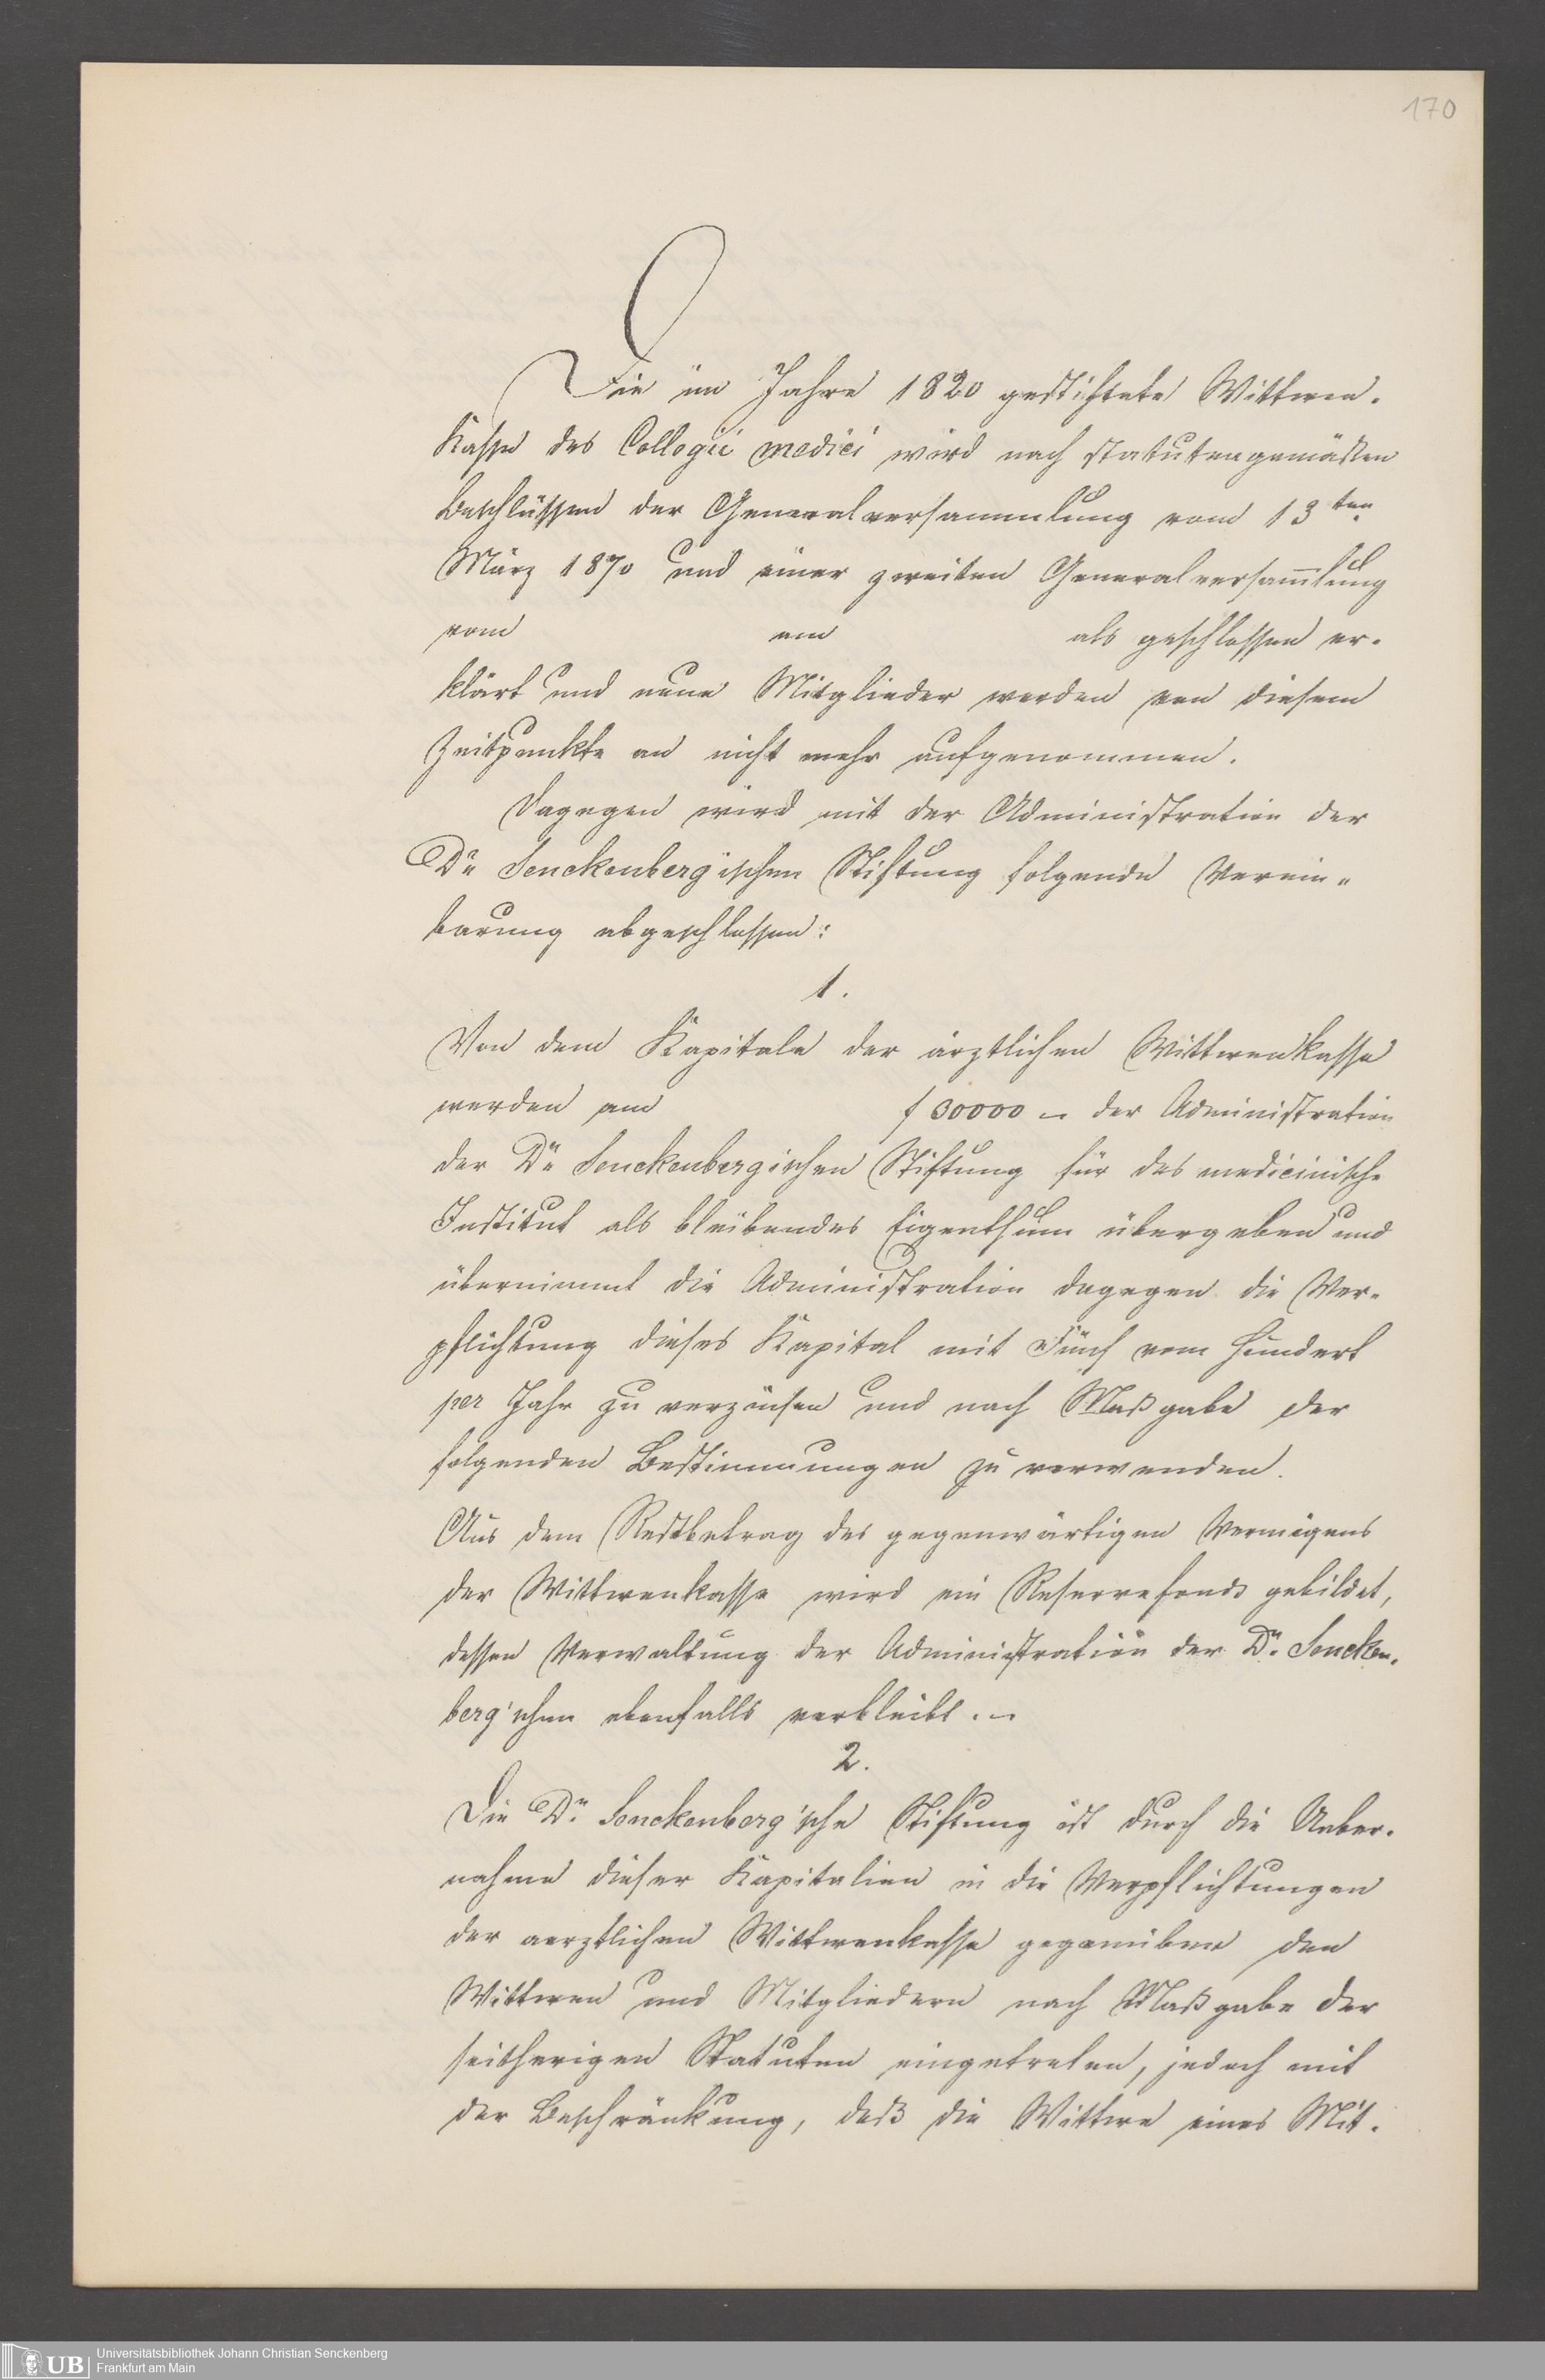 170
Die im Jahre 1820 gestiftete Wittwen-
Kasse des Collegii medici wird nach statutengemäßen
Beschlüssen der Generalversammlung vom 13ten
März 1870 und einer zweiten Generalversam̄lung
vom am als geschlossen er-
klärt und neue Mitglieder werden von diesem
Zeitpunkte an nicht mehr aufgenommen.
Dagegen wird mit der Administration der
Dr. Senckenberg'ischen Stiftung folgende Verein-
barung abgeschlossen:
1.
Von dem Kapitale der ärztlichen Wittwenkasse
werden am f 30000 – der Administration
der Dr. Senckenbergischen Stiftung für das medicinische
Institut als bleibendes Eigenthum übergeben und
übernimmt die Administration dagegen die Ver-
pflichtung dieses Kapital mit Fünf vom Hundert
per Jahr zu verzinsen und nach Maßgabe der
folgenden Bestimmungen zu verwenden.
Aus dem Restbetrag des gegenwärtigen Vermögens
der Wittwenkasse wird ein Reservefonds gebildet,
dessen Verwaltung der Administration der Dr. Sencken-
berg'schen ebenfalls verbleibt. –
2.
Die Dr. Senckenberg'sche Stiftung ist durch die Ueber-
nahme dieser Kapitalien in die Verpflichtungen
der aerztlichen Wittwenkasse gegenüber den
Wittwen und Mitgliedern nach Maßgabe der
seitherigen Statuten eingetreten, jedoch mit
der Beschränkung, daß die Wittwe eines Mit-
UB Universitätsbibliothek Johann Christian Senckenberg
Frankfurt am Main